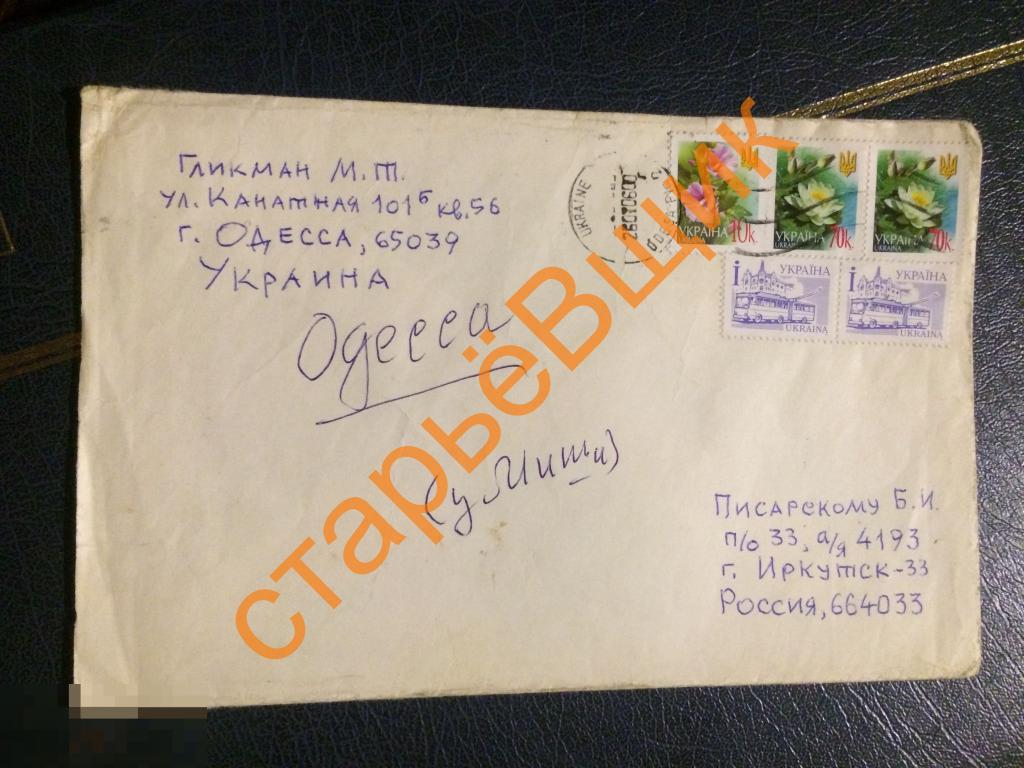 Гликман М. Т.
ул. Канатная 101б кв. 56
г. Одесса, 65039
Украина
Одесса
(у Миши)
UKRAINE
УКРАЇНА 10к.
УКРАЇНА 70к.
УКРАЇНА 70к.
UKRAINA
і УКРАЇНА
UKRAINA
і УКРАЇНА
UKRAINA
Писарскому Б. И.
п/о 33, а/я 4193
г. Иркутск-33
Россия, 664033
старьёВщик